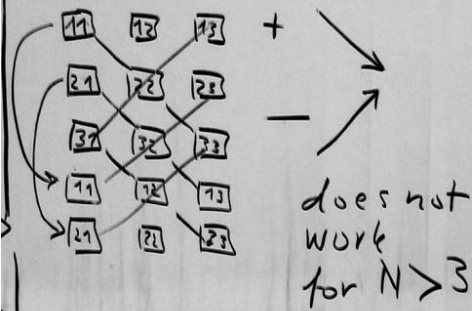 11 12 13 +
21 22 23
31 32 33 −
11 12 13
21 22 23
does not
work
for N > 3